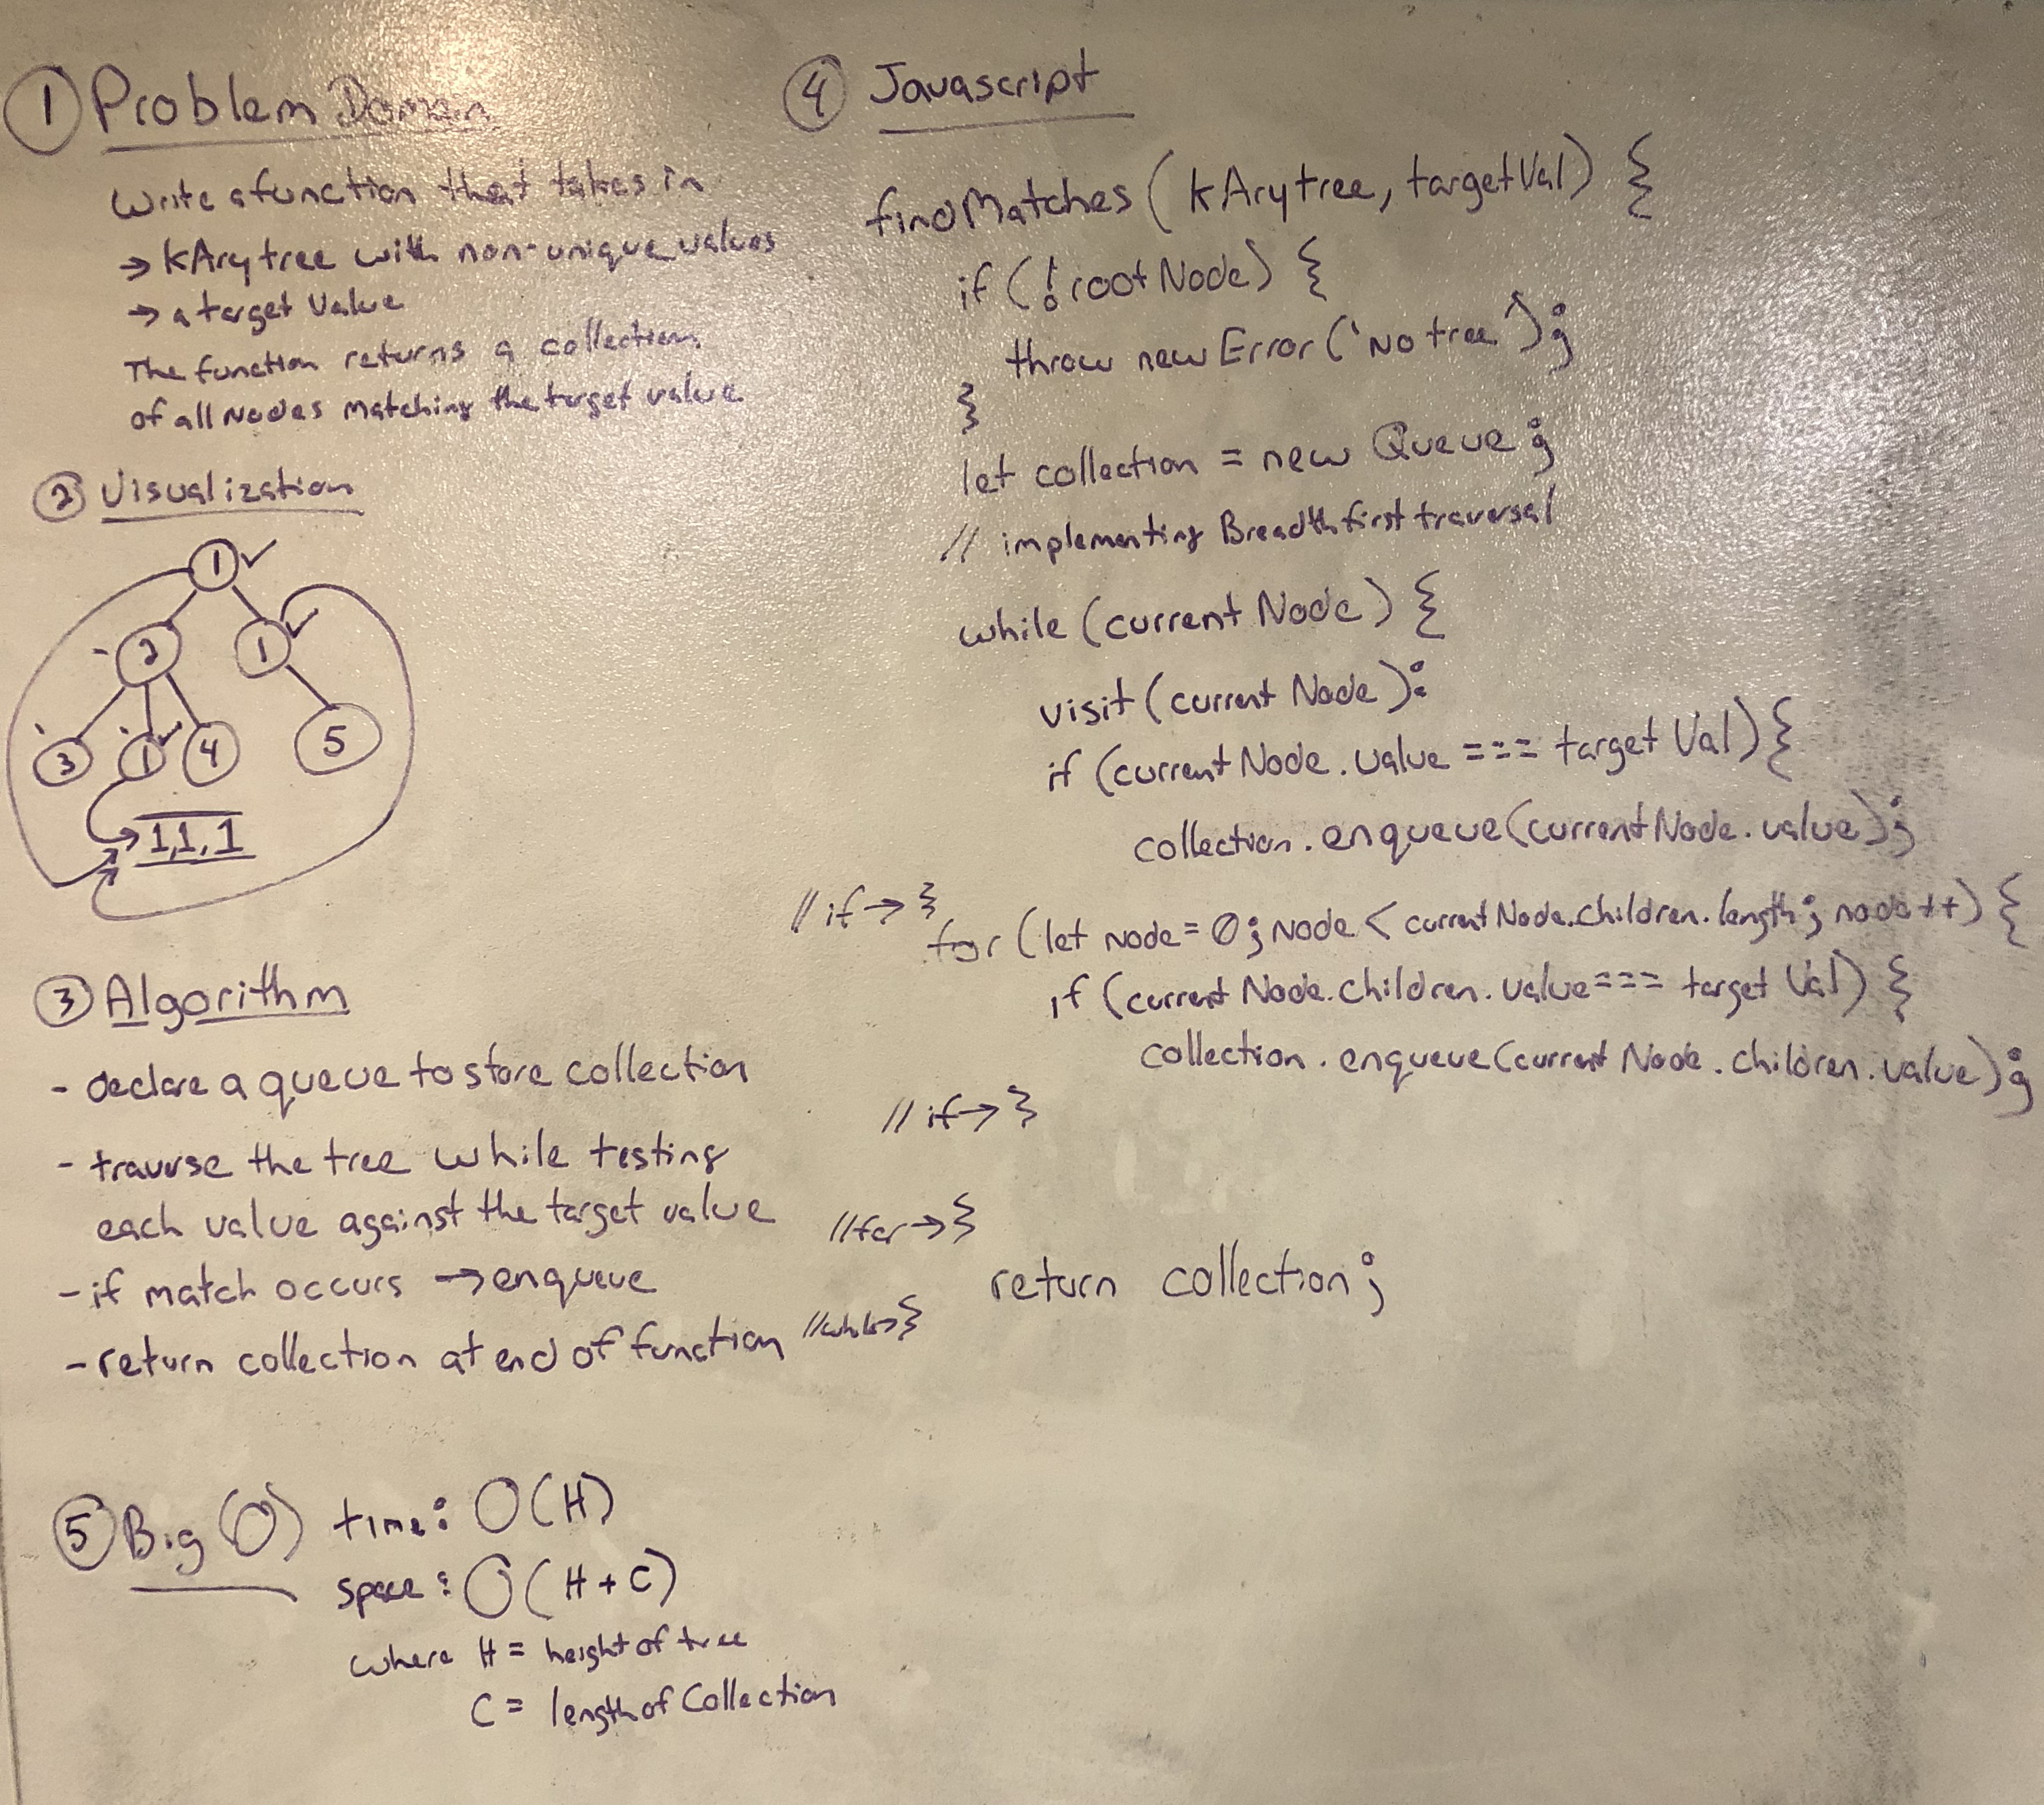 ① Problem Domain
Write a function that takes in
→ kArytree with non-unique values
→ a target Value
The function returns a collection
of all Nodes Matching the target value.
② Visualization
1
2 1
3 1 4 5
1,1,1
③ Algorithm
- declare a queue to store collection
- traverse the tree while testing
each value against the target value
- if match occurs → enqueue
- return collection at end of function
④ Javascript
findMatches (kArytree, targetVal) {
if (!rootNode) {
throw new Error('No tree');
}
let collection = new Queue;
// implementing Breadth first traversal
while (currentNode) {
visit (current Node);
if (current Node.value === target Val) {
collection.enqueue(currentNode.value);
// if → }
for (let node = 0; node < currentNode.children.length; node++) {
if (current Node.children.value === target Val) {
collection.enqueue(current Node.children.value);
// if → }
// for → }
return collection;
// while → }
⑤ Big (O) time: O(H)
space: O(H+C)
where H = height of tree
C = length of Collection